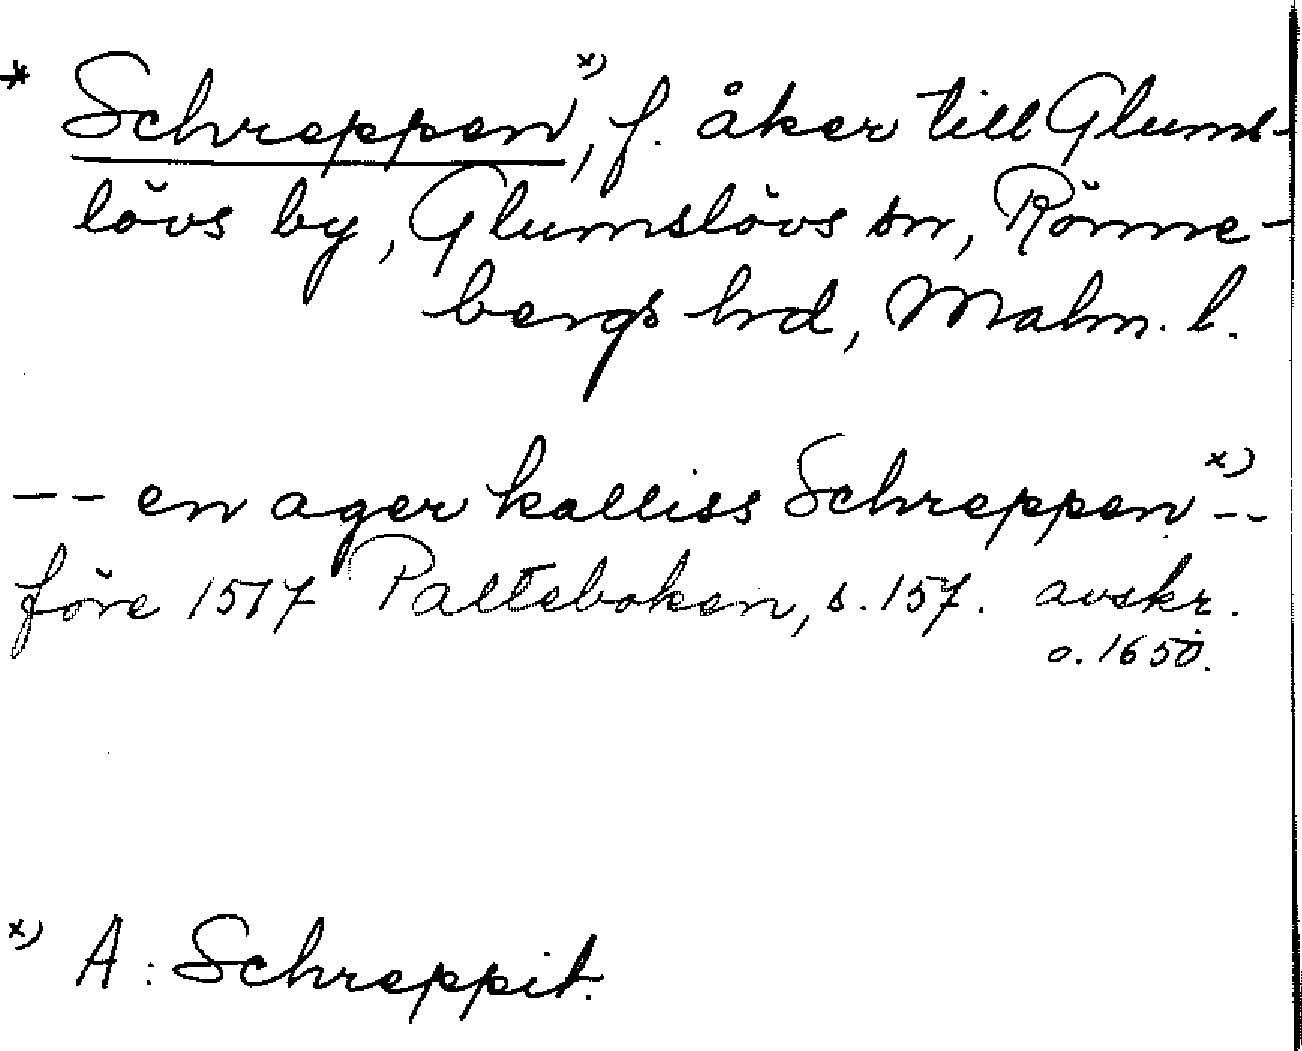 * Schreppen x), f. åker till Glums-
lövs by, Glumslövs sn, Rönne-
bergs hrd, Malm. l.
-- en ager kalliss Schreppen x) --
före 1517 Palteboken, s. 157. avskr.
o. 1650.
x) A: Schreppit.